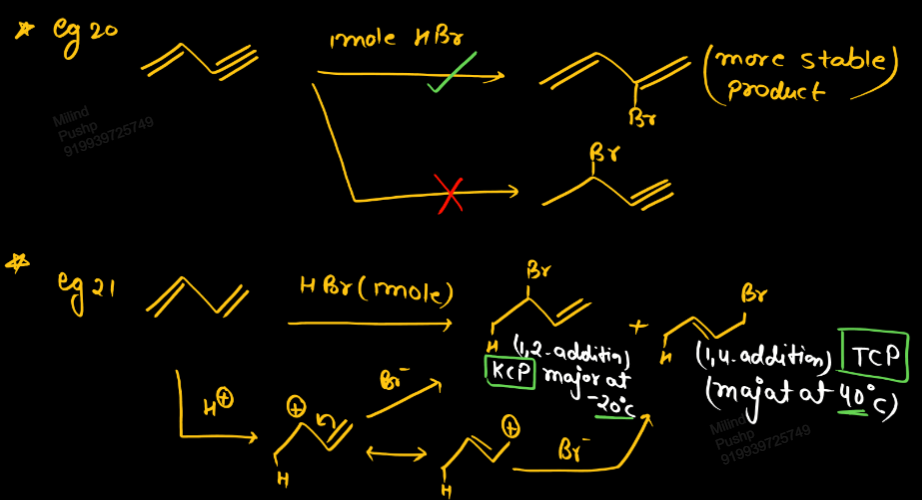 * eg 20
1mole HBr
(more stable)
product
Br
Milind
Pushp
919939725749
Br
* eg 21
HBr (1mole)
Br
+
Br
H
H
(1,2-addition)
KCP major at
-20°C
(1,4-addition) TCP
(majat at 40°C)
H⊕
⊕
Br⁻
H
⊕
H
Br⁻
Milind
Pushp
919939725749